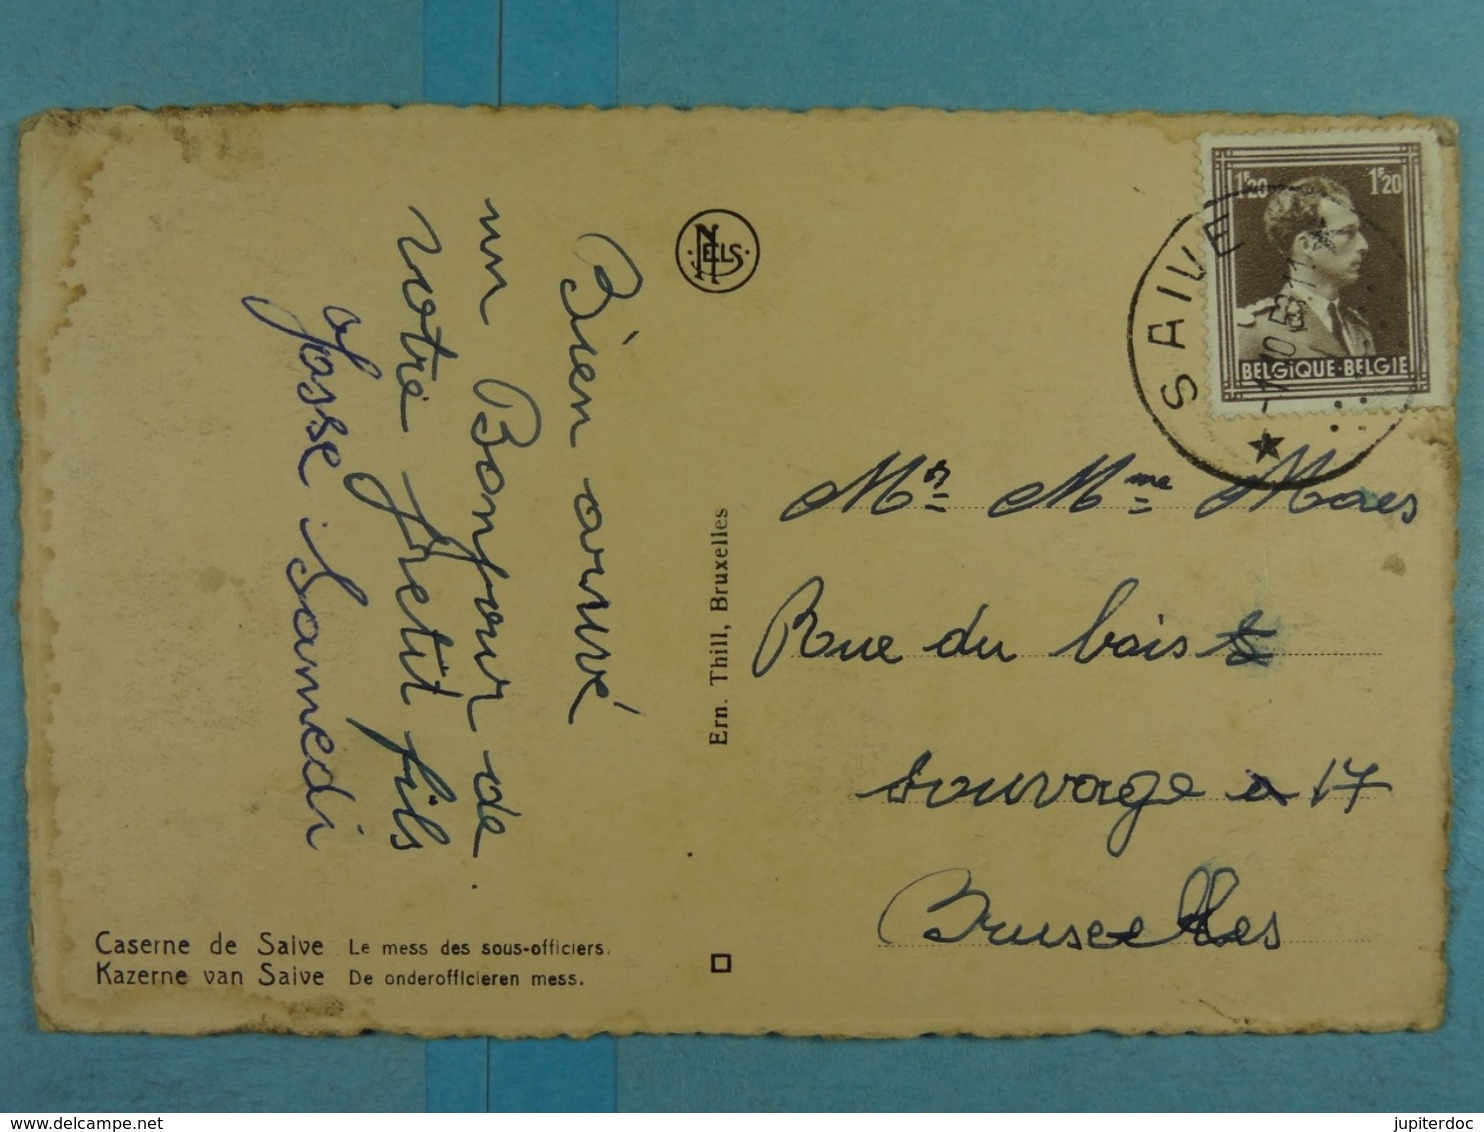 Bien arrivé
un Bonjour de
votre petit fils
Josse. Samedi
NELS
Ern. Thill, Bruxelles
1F20 1F20
BELGIQUE·BELGIE
SAIVE
Mr Mme Maes
Rue du bois
sauvage 17
Bruxelles
Caserne de Saive Le mess des sous-officiers.
Kazerne van Saive De onderofficieren mess.
jupiterdoc